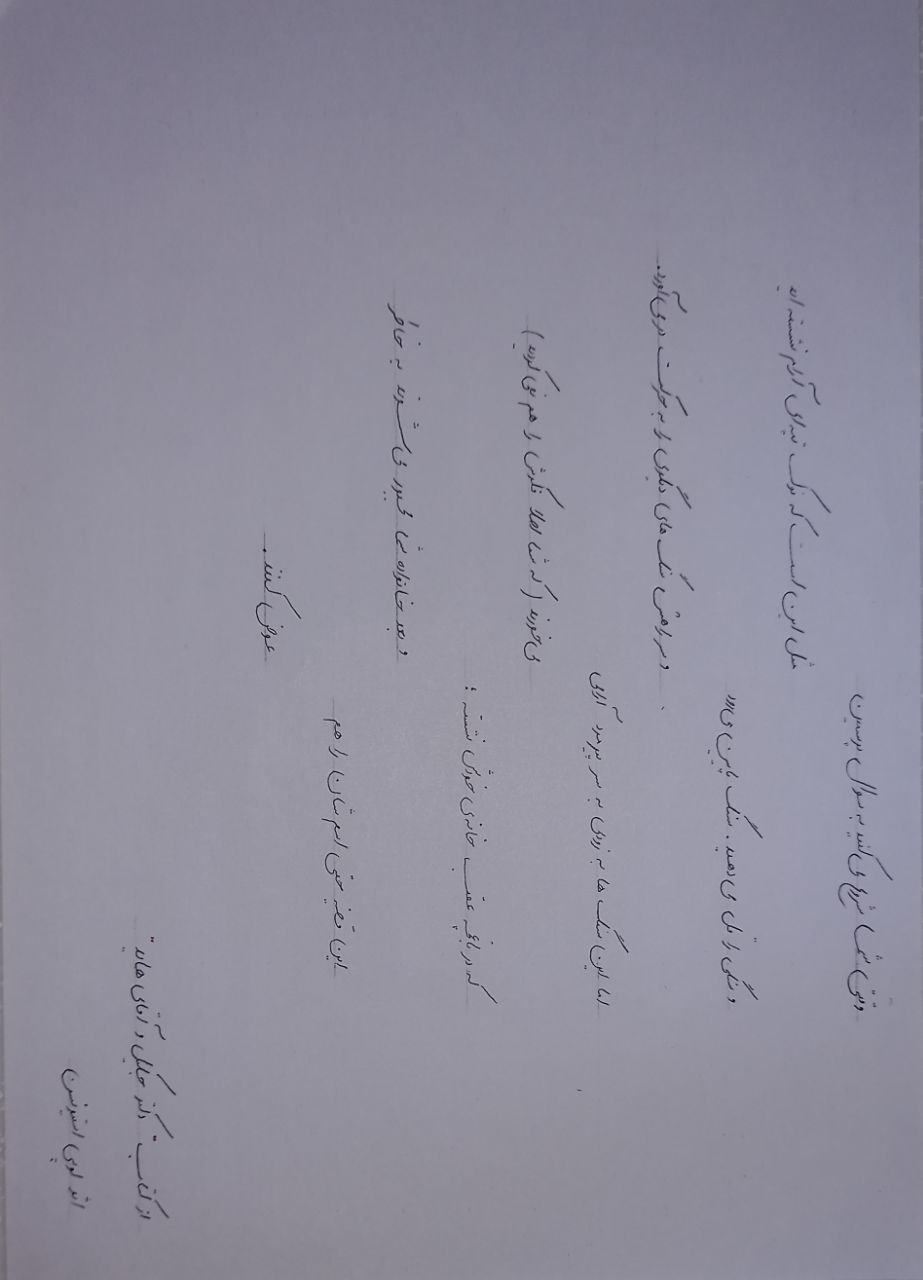 وقتی شما شروع می کنید به سوال پرسیدن
مثل این است که نوک تپه ای آرام نشسته اید
و سنگی را قل می دهید. سنگ پایین می رود
و سر راهش سنگ های دیگری را به حرکت در می آورد.
اما این سنگ ها به زودی به سر پیرمرد آرامی
می خورند (که شما اصلا فکرش را هم نمی کردید)
که در باغچه عقب خانه ی خودش نشسته ؛
و بعد خانواده شما مجبور می شوند به خاطر
این قضیه حتی اسم شان را هم
عوض کنند.
از کتاب " دکتر جکیل و آقای هاید"
اثر لویی استیونسن